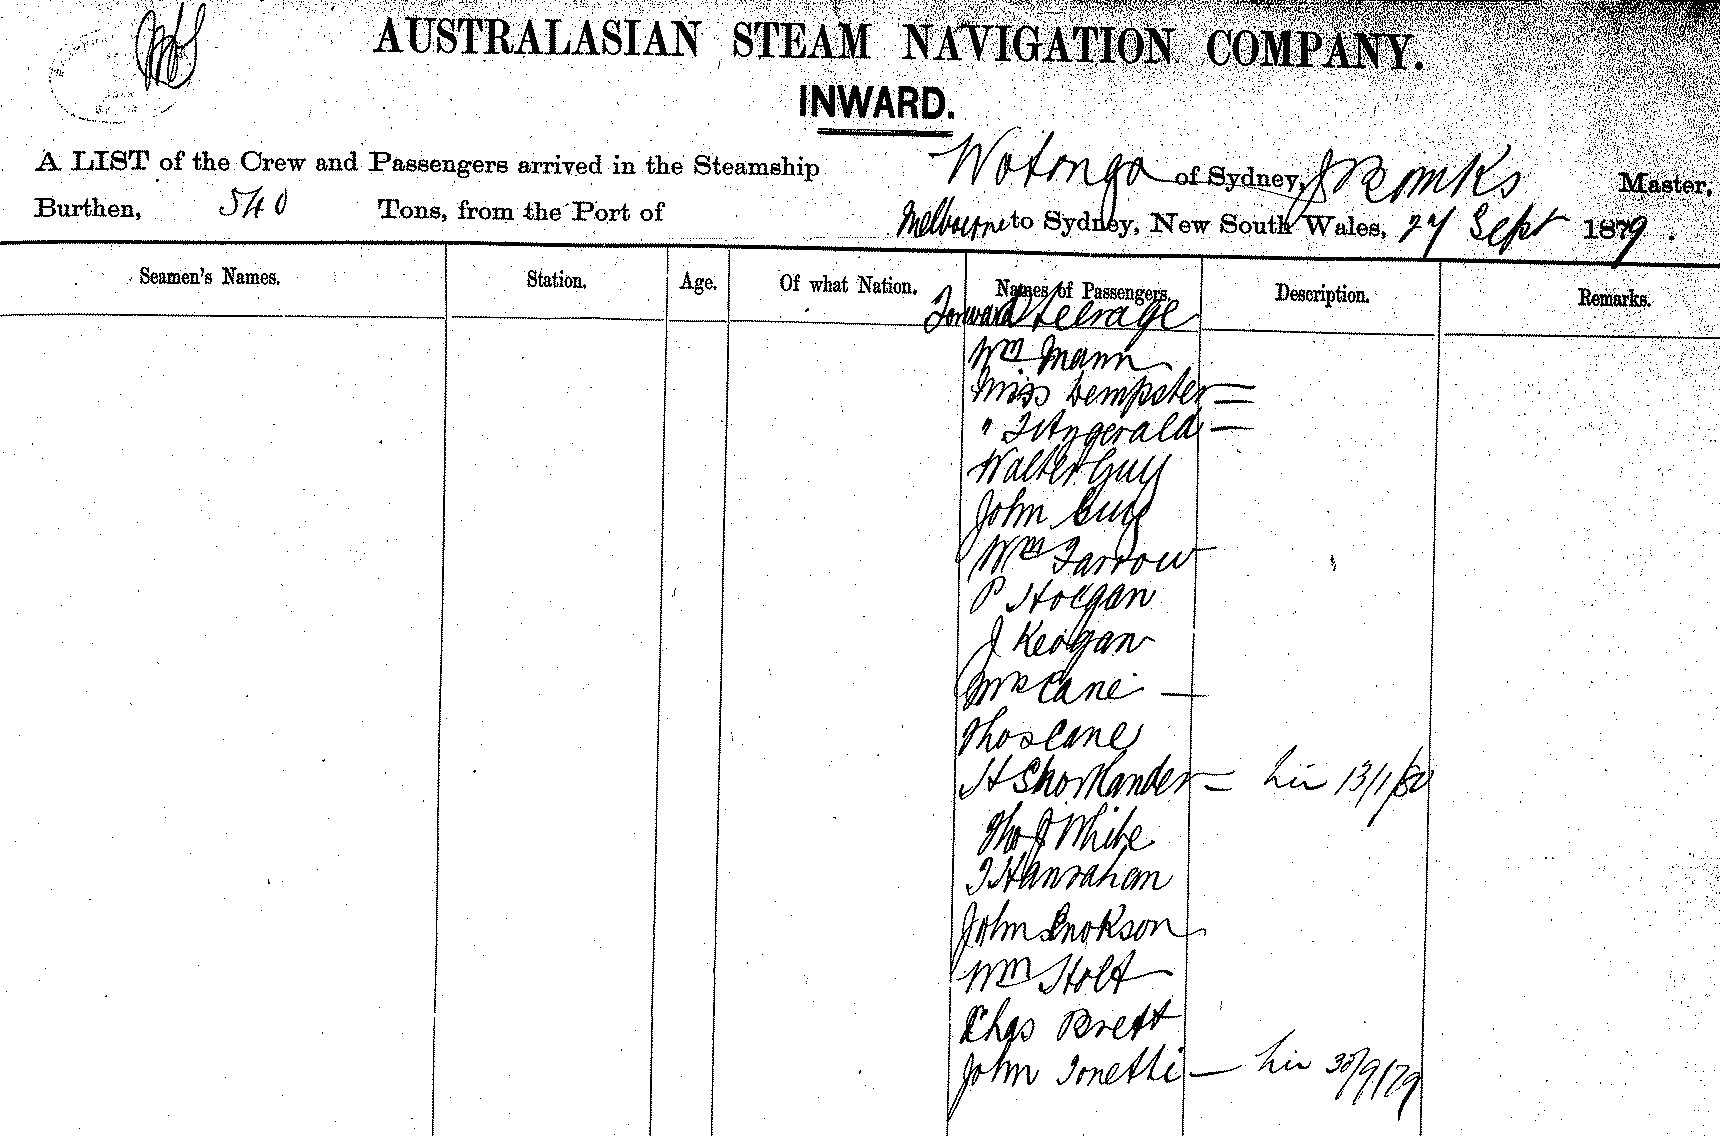 AUSTRALASIAN STEAM NAVIGATION COMPANY.
INWARD.
A LIST of the Crew and Passengers arrived in the Steamship Wotonga of Sydney, Master,
Burthen, 540 Tons, from the Port of Melbourne to Sydney, New South Wales, 27 Sept 1879.
Seamen's Names. Station. Age. Of what Nation. Names of Passengers. Description. Remarks.
Forward Steerage
Wm Mann
Miss Dempster
" Fitzgerald
Walter Guy
John Guy
Wm Farrow
P Hoegan
J Keogan
Mrs Cane
Thos Cane
H Shortlander 13/1/80
Tho J White
T Hanrahan
John Enokson
Wm Holt
Chas Brett
John Tonetti 30/9/79